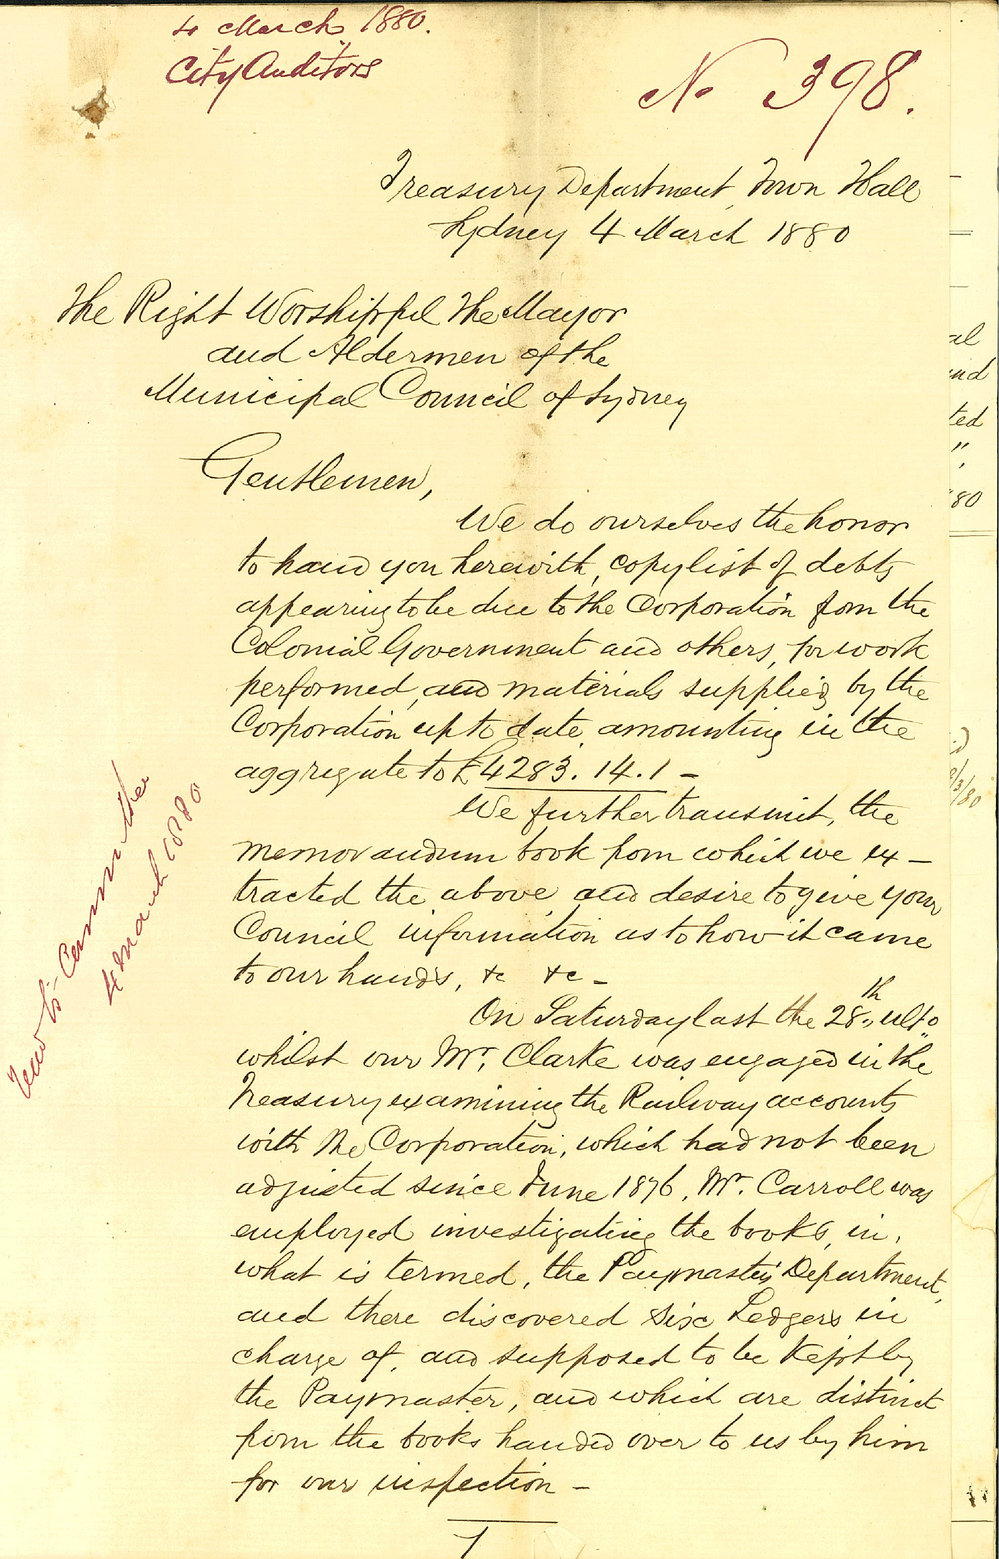 4 March 1880.
City Auditors
No 398.
Treasury Department, Town Hall
Sydney 4 March 1880
The Right Worshipful The Mayor
and Aldermen of the
Municipal Council of Sydney
Gentlemen,
We do ourselves the honor
to hand you herewith, copy list of debts
appearing to be due to the Corporation from the
Colonial Government and others, for work
performed, and materials supplied by the
Corporation up to date, amounting in the
aggregate to £4283.14.1 –
We further transmit, the
memorandum book from which we ex–
tracted the above and desire to give your
Council information as to how it came
to our hands, &c &c –
On Saturday last the 28th ulto
whilst our Mr. Clarke was engaged in the
Treasury examining the Railway accounts
with the Corporation, which had not been
adjusted since June 1876, Mr. Carroll was
employed investigating the books, in,
what is termed, the Paymaster's Department,
and there discovered six Ledgers in
charge of, and supposed to be kept by
the Paymaster, and which are distinct
from the books handed over to us by him
for our inspection –
1
Committee
4 March 1880
al
and
ted
"
80
/3/80